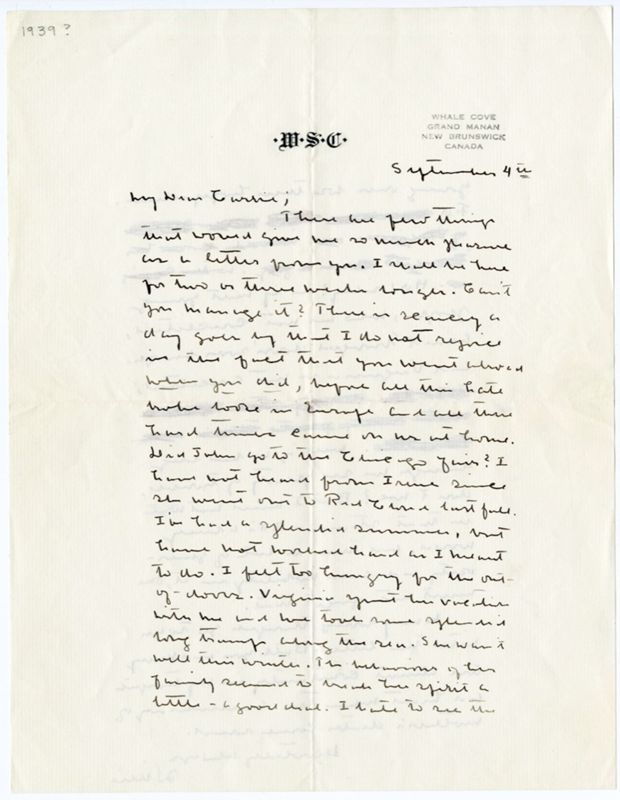 1939?
·W·S·C·
WHALE COVE
GRAND MANAN
NEW BRUNSWICK
CANADA
September 4th
My Dear Carrie;
There are few things
that would give me so much pleasure
as a letter from you. I shall be here
for two or three weeks longer. Can't
you manage it? There is scarcely a
day goes by that I do not rejoice
in the fact that you went abroad
when you did, before all this hate
broke loose in Europe and all these
hard times came on us at home.
Did John go to the Chicago fair? I
have not heard from Irene since
she went out to Red Cloud last fall.
I've had a splendid summer, but
have not worked hard as I meant
to do. I felt too hungry for the out-
of-doors. Virginia spent her vacation
with me and we took some splendid
long tramps along the sea. She wasn't
well this winter. The behaviour of her
family seemed to break her spirit a
little - a good deal. I hate to see the